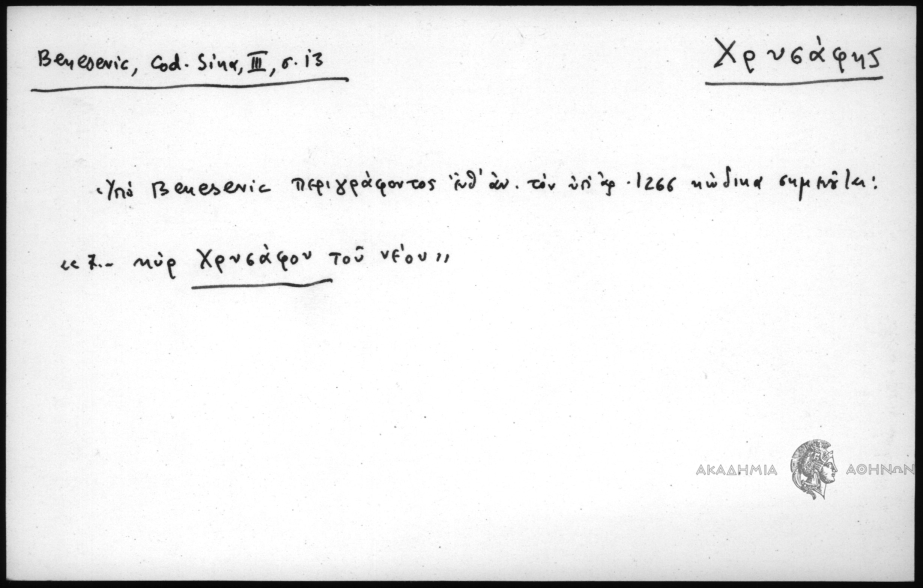 Beneševic, Cod. Sina, III, σ. 13
Χρυσάφης
Ὑπό Beneševic περιγράφοντος ἔνθ' ἀν. τόν ὑπ' ἀρ. 1266 κώδικα σημειοῦται:
«7... κύρ Χρυσάφου τοῦ νέου»
ΑΚΑΔΗΜΙΑ ΑΘΗΝΩΝ